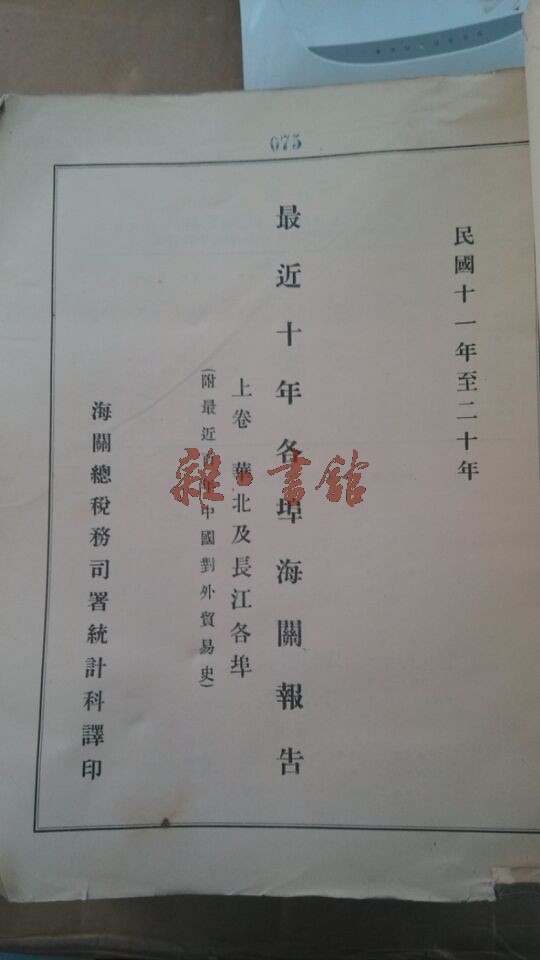 075
民國十一年至二十年
最近十年各埠海關報告
上卷 華北及長江各埠
(附最近百年中國對外貿易史)
海關總稅務司署統計科譯印
雜·書館